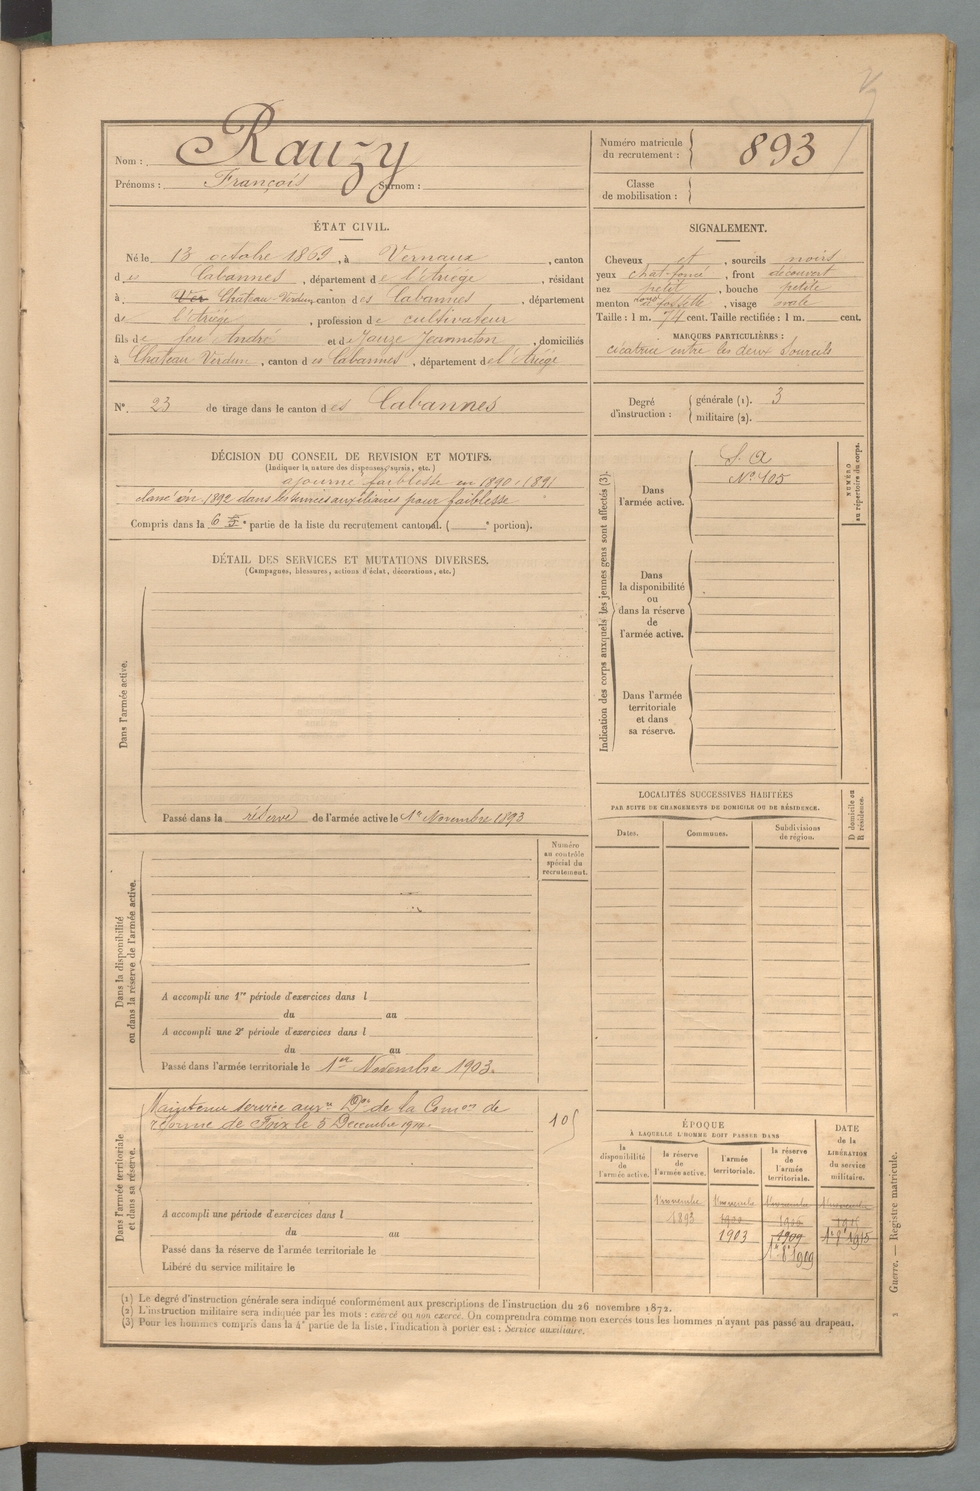 Nom : Rauzy
Prénoms : François Surnom :
Numéro matricule
du recrutement : 893
Classe
de mobilisation :
ÉTAT CIVIL.
Né le 13 octobre 1869, à Vernaux, canton
des Cabannes, département de l'Ariège, résidant
à Ver Château-Verdun, canton des Cabannes, département
de l'Ariège, profession de cultivateur
fils de feu André et de Jauze Jeanneton, domiciliés
à Château Verdun, canton des Cabannes, département de l'Ariège
SIGNALEMENT.
Cheveux et, sourcils noirs
yeux chat. foncé, front découvert
nez petit, bouche petite
menton rond à fossette, visage ovale
Taille : 1 m. 74 cent. Taille rectifiée : 1 m. cent.
MARQUES PARTICULIÈRES :
cicatrice entre les deux sourcils
N° 23 de tirage dans le canton des Cabannes
Degré
d'instruction :
générale (1). 3
militaire (2).
DÉCISION DU CONSEIL DE REVISION ET MOTIFS.
(Indiquer la nature des dispenses, sursis, etc.)
ajourné faiblesse en 1890, 1891
classé en 1892 dans les services auxiliaires pour faiblesse
Compris dans la 6 5e partie de la liste du recrutement cantonal. ( e portion).
DÉTAIL DES SERVICES ET MUTATIONS DIVERSES.
(Campagnes, blessures, actions d'éclat, décorations, etc.)
Dans l'armée active.
Passé dans la réserve de l'armée active le 1er Novembre 1893
Indication des corps auxquels les jeunes gens sont affectés (3).
Dans
l'armée active.
S. A
N° 105
NUMÉRO
au répertoire du corps.
Dans
la disponibilité
ou
dans la réserve
de
l'armée active.
Dans l'armée
territoriale
et dans
sa réserve.
LOCALITÉS SUCCESSIVES HABITÉES
PAR SUITE DE CHANGEMENTS DE DOMICILE OU DE RÉSIDENCE.
D domicile ou
R résidence.
Dates.
Communes.
Subdivisions
de région.
Numéro
au contrôle
spécial du
recrutement.
Dans la disponibilité
ou dans la réserve de l'armée active.
A accompli une 1re période d'exercices dans l
du au
A accompli une 2e période d'exercices dans l
du au
Passé dans l'armée territoriale le 1er Novembre 1903.
Dans l'armée territoriale
et dans sa réserve.
Maintenu service auxre Don de la Comon de
réforme de Foix le 5 Decembre 1914.
105
A accompli une période d'exercices dans l
du au
Passé dans la réserve de l'armée territoriale le
Libéré du service militaire le
ÉPOQUE
À LAQUELLE L'HOMME DOIT PASSER DANS
la
disponibilité
de
l'armée active.
la réserve
de
l'armée active.
l'armée
territoriale.
la réserve
de
l'armée
territoriale.
DATE
de la
LIBÉRATION
du service
militaire.
1 novembre 1 novembre 1 novembre 1 novembre
1893 1900 1906 1915
1903 1909 1er 8bre 1915
1er 8bre 1909
(1) Le degré d'instruction générale sera indiqué conformément aux prescriptions de l'instruction du 26 novembre 1872.
(2) L'instruction militaire sera indiquée par les mots : exercé ou non exercé. On comprendra comme non exercés tous les hommes n'ayant pas passé au drapeau.
(3) Pour les hommes compris dans la 4e partie de la liste, l'indication à porter est : Service auxiliaire.
Guerre. — Registre matricule.